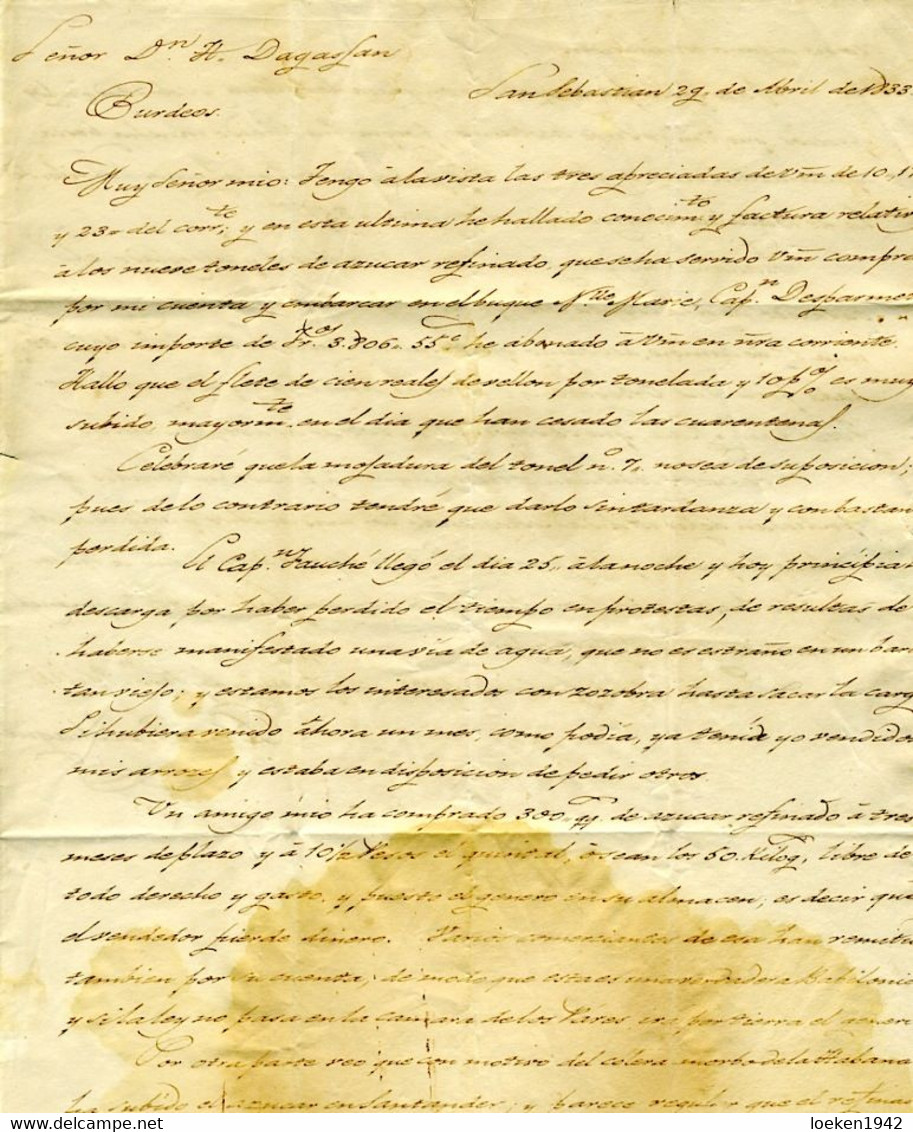 Señor Dn. H. Dagassan
San Sebastian 29, de Abril de 1833
Burdeos.
Muy Señor mio: Tengo á la vista las tres apreciadas de Vm de 10,
y 23" del corrte; y en esta ultima he hallado conocimto y factura
á los nueve toneles de azucar refinado, que se ha servido Vm
por mi cuenta y embarcar en el buque Marie, Capn
cuyo importe de 3.806,, 55c he abonado á Vm en nra corriente.
Hallo que el flete de cien reales de vellon por tonelada y 10 p% es muy
subido, mayormte en el dia que han cesado las cuarentenas.
Celebraré que la mojadura del tonel no. 7,, no sea de suposicion;
pues de lo contrario tendré que darlo sin tardanza y con
perdida.
El Capn. Fauché llegó el dia 25,, á la noche y hoy principia
descarga por haber perdido el tiempo en protestas, de resultas de
haberse manifestado una vía de agua, que no es estraño en un
tan viejo; y estamos los interesados con zozobra hasta sacar la
Si hubiera venido ahora un mes, como podía, ya tenía yo vendidos
mis arroces y estaba en disposicion de pedir otros.
Un amigo mio ha comprado 300,, qq. de azucar refinado á tres
meses de plazo y á 10½ Pesos el quintal, ó sean los 50 Kilog, libre de
todo derecho y gasto, y puesto el genero en su almacen; es decir que
el vendedor pierde dinero. Varios comerciantes de esa han
tambien por su cuenta, de modo que esta es una verdadera Babilonia
y si la ley no pasa en la camara de los Pares irá por tierra el
Por otra parte veo que con motivo del colera morbo de la Habana
ha subido el azucar en Santander; y parece regular que el
loeken1942